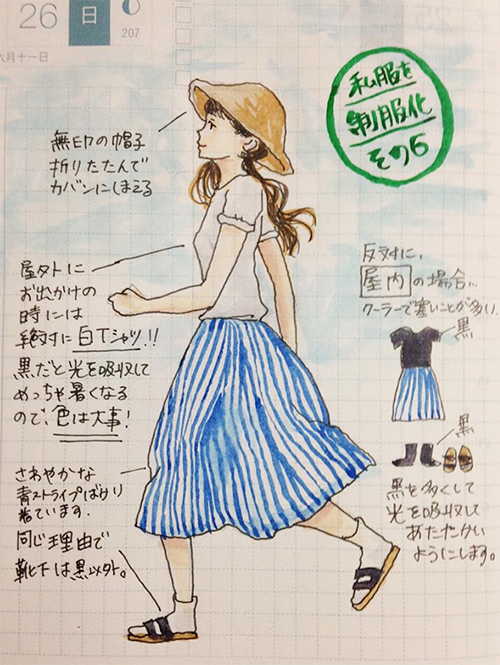 26
日
207
六月十一日
私服を
制服化
その6
無印の帽子
折りたたんで
カバンにしまえる
屋外に
お出かけの
時には
絶対に白Tシャツ!!
黒だと光を吸収して
めっちゃ暑くなる
ので、色は大事!
さわやかな
青ストライプばかり
着ています。
同じ理由で
靴下は黒以外。
反対に、
屋内の場合…
クーラーで寒いことが多い
黒
黒
黒を多くして
光を吸収して
あたたかい
ようにします。